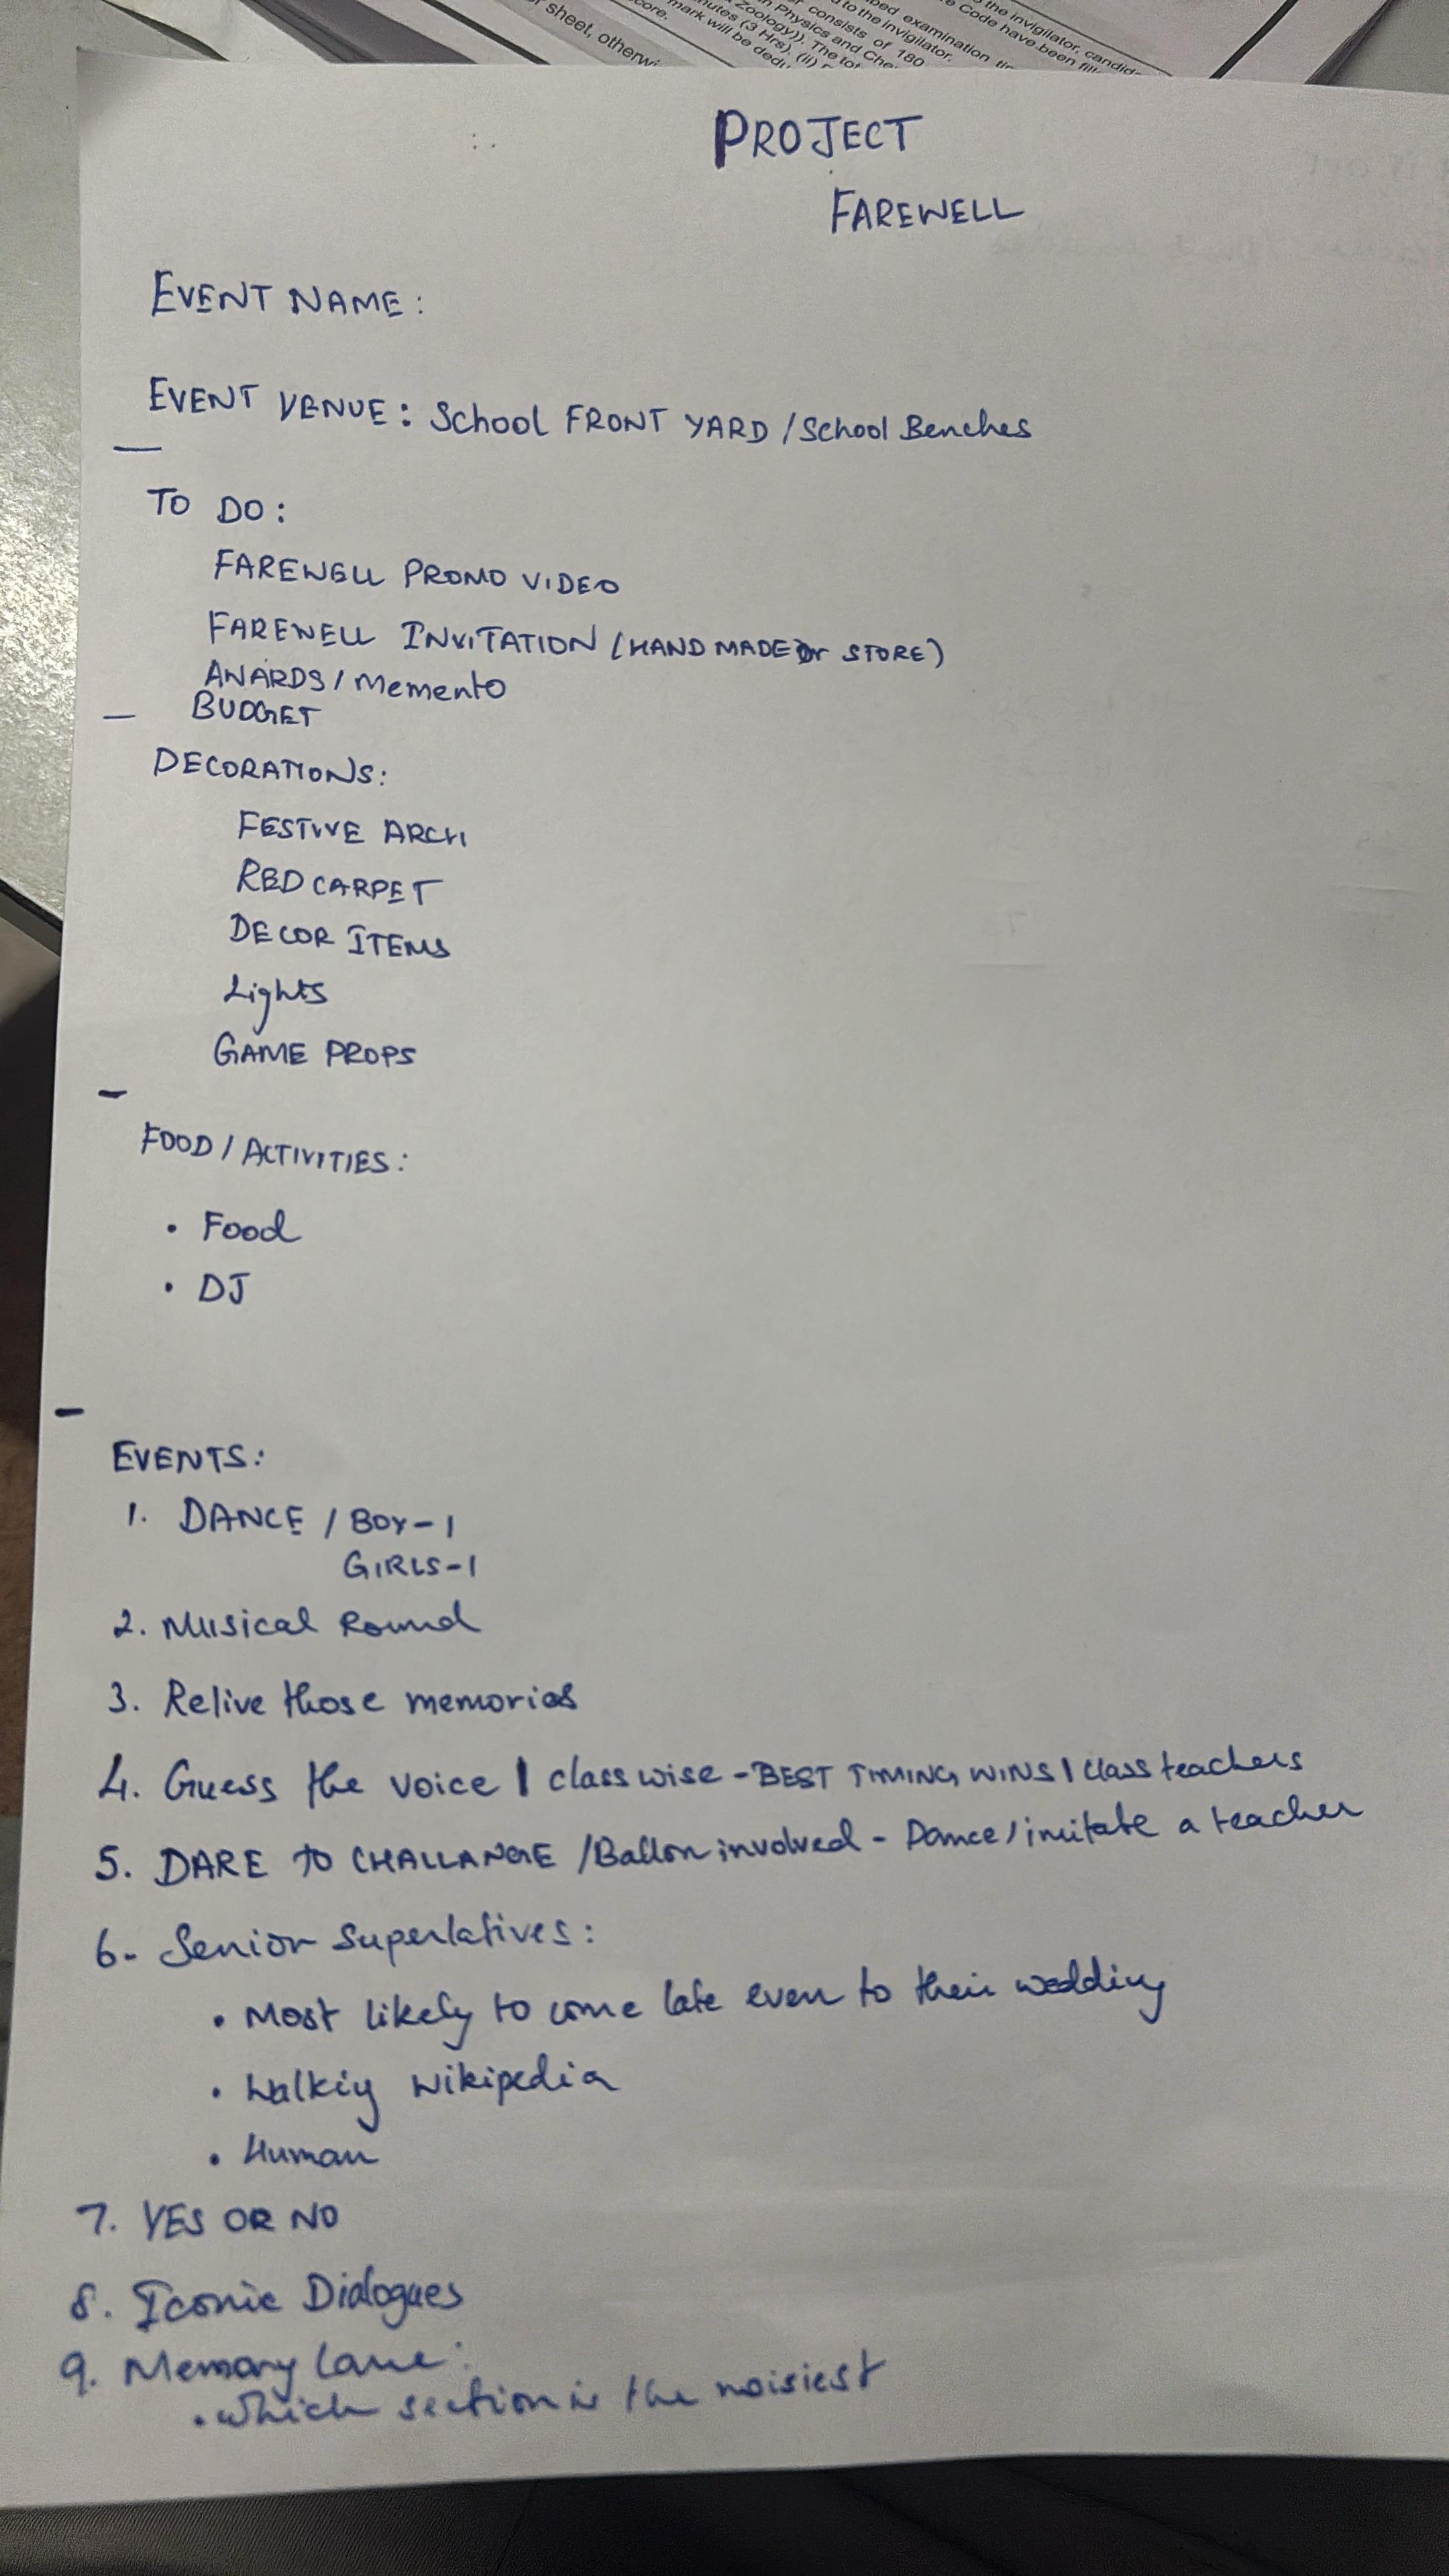 the invigilator, candid
Code have been fill
bed examination ti
to the invigilator.
consists of 180
n Physics and Che
nutes (3 Hrs). (ii)
Zoology)). The tot
mark will be dedu
core.
sheet, otherwi
PROJECT
FAREWELL
EVENT NAME:
EVENT VENUE: School FRONT YARD / School Benches
TO DO:
FAREWELL PROMO VIDEO
FAREWELL INVITATION (HAND MADE or STORE)
AWARDS / Memento
BUDGET
DECORATIONS:
FESTIVE ARCH
RED CARPET
DECOR ITEMS
Lights
GAME PROPS
FOOD / ACTIVITIES:
• Food
• DJ
EVENTS:
1. DANCE / BOY-1
GIRLS-1
2. Musical Round
3. Relive those memories
4. Guess the voice | class wise - BEST TIMING WINS | Class teachers
5. DARE TO CHALLANGE / Ballon involved - Dance / imitate a teacher
6- Senior Superlatives:
• Most likely to come late even to their wedding
• Walkig Wikipedia
• Human
7. YES OR NO
8. Iconic Dialogues
9. Memory Lane:
• which section is the noisiest